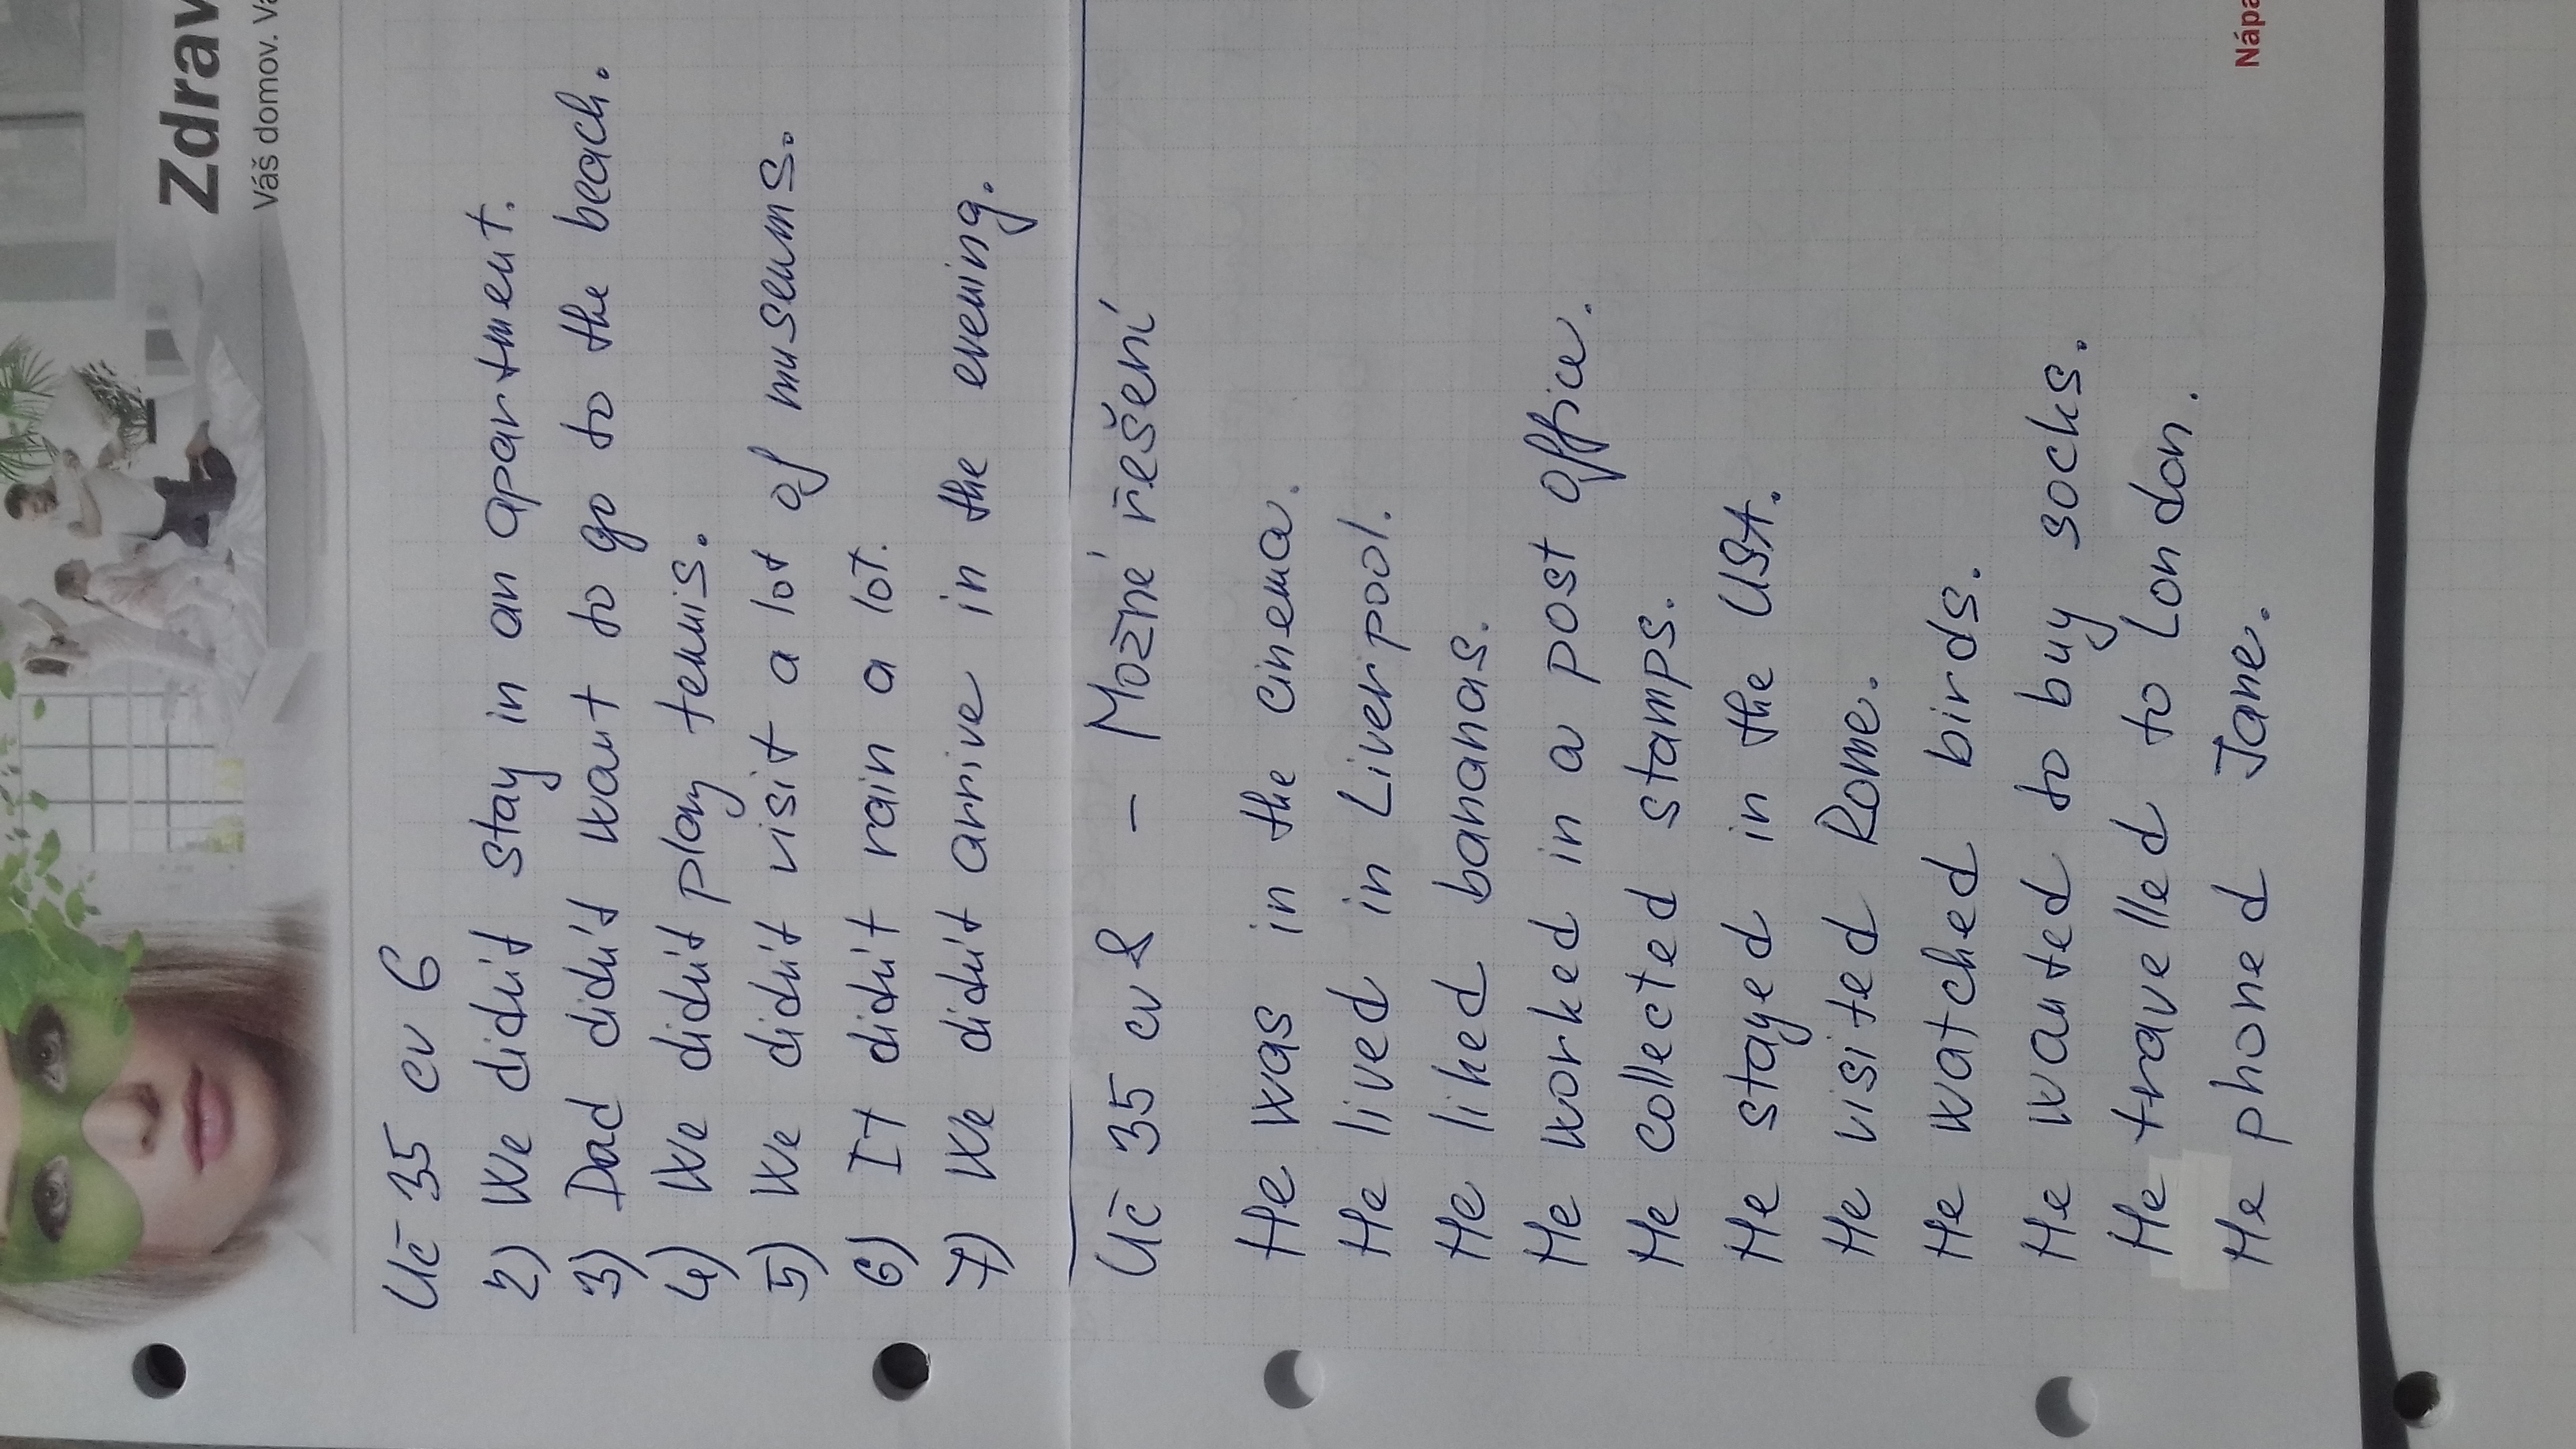 Zdrav
Váš domov. Va
Uč 35 cv 6
2) We didn't stay in an apartment.
3) Dad didn't want to go to the beach.
4) We didn't play tennis.
5) We didn't visit a lot of museums.
6) It didn't rain a lot.
7) We didn't arrive in the evening.
Uč 35 cv 8 – Možné řešení
He was in the cinema.
He lived in Liverpool.
He liked bananas.
He worked in a post office.
He collected stamps.
He stayed in the USA.
He visited Rome.
He watched birds.
He wanted to buy socks.
He travelled to London.
He phoned Jane.
Nápa